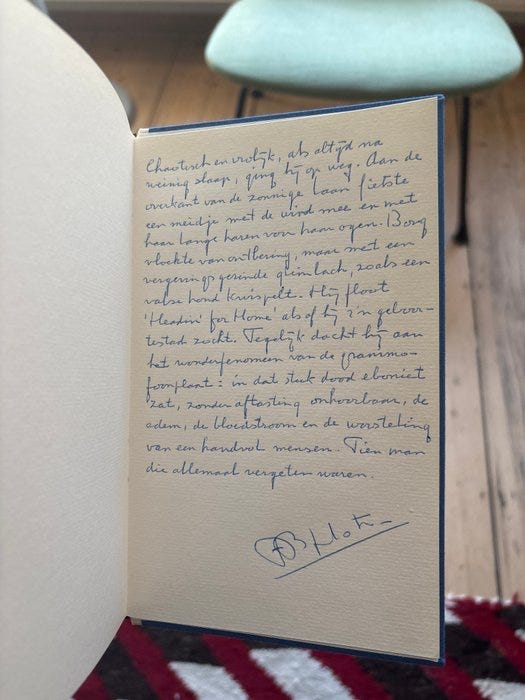 Chaotisch en vrolijk, als altijd na
weinig slaap, ging hij op weg. Aan de
overkant van de zonnige laan fietste
een meidje met de wind mee en met
haar lange haren voor haar ogen. Bonq
vloekte van ontbering, maar met een
vergevingsgezinde grimlach, zoals een
valse hond kwispelt. Hij floot
'Headin' for Home' als of hij z'n geboor-
testad zocht. Tegelijk dacht hij aan
het wonderfenomeen van de grammo-
foonplaat: in dat stuk dood eboniet
zat, zonder aftasting onhoorbaar, de
adem, de bloedstroom en de worsteling
van een handvol mensen. Tien man
die allemaal vergeten waren.